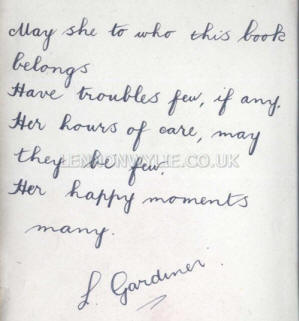 May she to who this book
belongs
Have troubles few, if any.
Her hours of care, may
they be few.
LENNONWYLIE.CO.UK
Her happy moments
many.
L. Gardiner